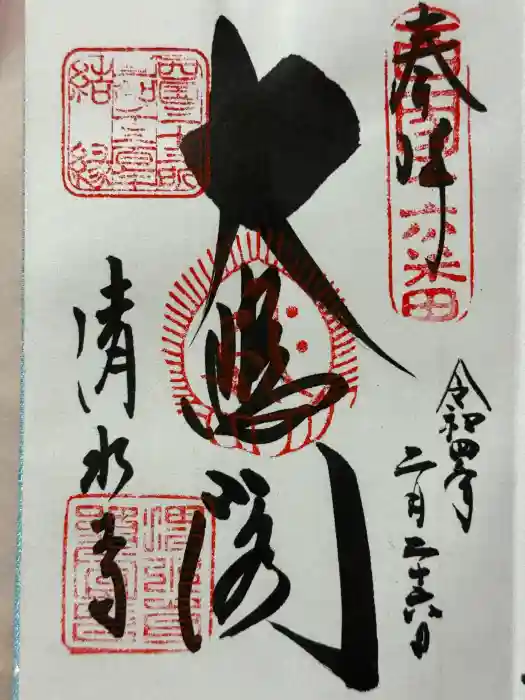 奉拝
令和四年
二月二十六日
大悲閣
結縁
清水寺